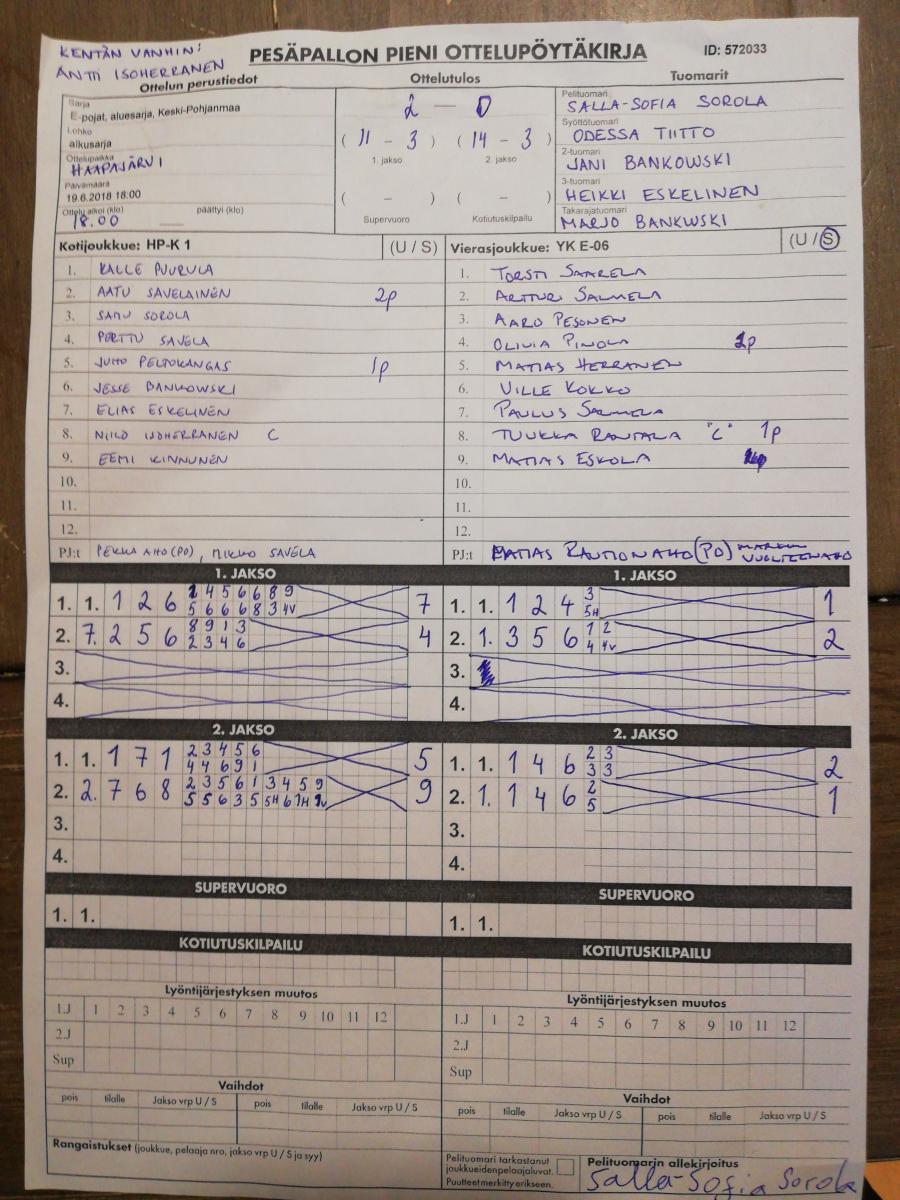 KENTÄN VANHIN:
ANTTI ISOHERRANEN
PESÄPALLON PIENI OTTELUPÖYTÄKIRJA
ID: 572033
Ottelun perustiedot
Sarja
E-pojat, aluesarja, Keski-Pohjanmaa
Lohko
alkusarja
Ottelupaikka
HAAPAJÄRVI
Päivämäärä
19.6.2018 18:00
Ottelu alkoi (klo) päättyi (klo)
18.00
Ottelutulos
2 - 0
( 11 - 3 ) ( 14 - 3 )
1. jakso 2. jakso
( - ) ( - )
Supervuoro Kotiutuskilpailu
Tuomarit
Pelituomari
SALLA-SOFIA SOROLA
Syöttötuomari
ODESSA TIITTO
2-tuomari
JANI BANKOWSKI
3-tuomari
HEIKKI ESKELINEN
Takarajatuomari
MARJO BANKWSKI
Kotijoukkue: HP-K 1 (U / S)
1. KALLE PUURULA
2. AATU SAVELAINEN 2p
3. SAMU SOROLA
4. PERTTU SAVELA
5. JUHO PELTOKANGAS 1p
6. JESSE BANKOWSKI
7. ELIAS ESKELINEN
8. NIILO ISOHERRANEN C
9. EEMI KINNUNEN
10.
11.
12.
PJ:t PEKKA AHO (PO), MIKKO SAVELA
Vierasjoukkue: YK E-06 (U / S)
1. TORSTI SAARELA
2. ARTTURI SALMELA
3. AARO PESONEN
4. OLIVIA PINOLA 2p
5. MATIAS HERRANEN
6. VILLE KOKKO
7. PAULUS SALMELA
8. TUUKKA RANTALA "C" 1p
9. MATIAS ESKOLA
10.
11.
12.
PJ:t MATIAS RAUTIONAHO (PO)
1. JAKSO
1. 1. 1 2 6 2 4 5 6 6 8 9 7
5 6 6 6 8 3 4V
2. 7. 2 5 6 8 9 1 3 4
2 3 4 6
3.
4.
1. JAKSO
1. 1. 1 2 4 3 1
5H
2. 1. 3 5 6 1 2 2
4 4V
3.
4.
2. JAKSO
1. 1. 1 7 1 2 3 4 5 6 5
4 4 6 9 1
2. 2. 7 6 8 2 3 5 6 1 3 4 5 9 9
5 5 6 3 5 5H 6 1H 1V
3.
4.
2. JAKSO
1. 1. 1 4 6 2 3 2
3 3
2. 1. 1 4 6 2 1
5
3.
4.
SUPERVUORO
1. 1.
SUPERVUORO
1. 1.
KOTIUTUSKILPAILU
KOTIUTUSKILPAILU
Lyöntijärjestyksen muutos
1.J 1 2 3 4 5 6 7 8 9 10 11 12
2.J
Sup
Lyöntijärjestyksen muutos
1.J 1 2 3 4 5 6 7 8 9 10 11 12
2.J
Sup
Vaihdot
pois tilalle Jakso vrp U / S pois tilalle Jakso vrp U / S
Vaihdot
pois tilalle Jakso vrp U / S pois tilalle Jakso vrp U / S
Rangaistukset (joukkue, pelaaja nro, jakso vrp U / S ja syy)
Pelituomari tarkastanut
joukkueiden pelaajaluvat.
Puutteet merkitty erikseen.
Pelituomarin allekirjoitus
Salla-Sofia Sorola